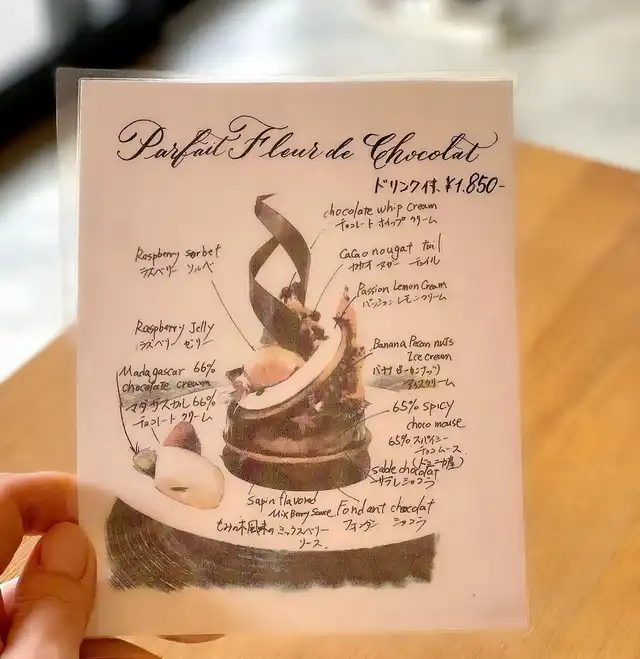 Parfait Fleur de Chocolat
ドリンク付 ¥1.850-
chocolate whip cream
チョコレート ホイップ クリーム
Raspberry sorbet
ラズベリー ソルベ
Cacao nougat tuil
カカオ ヌガー チュイル
Passion Lemon Cream
パッションレモンクリーム
Raspberry Jelly
ラズベリー ゼリー
Banana Pecan nuts
Ice cream
バナナ ピーカンナッツ
アイスクリーム
Madagascar 66%
chocolate cream
マダガスカル 66%
チョコレート クリーム
65% spicy
choco mouse
65% スパイシー
チョコムース
sable chocolat
サブレショコラ
Sapin flavored
Mix Berry Sauce
もみの木風味の ミックスベリー
ソース.
Fondant chocolat
フォンダン ショコラ